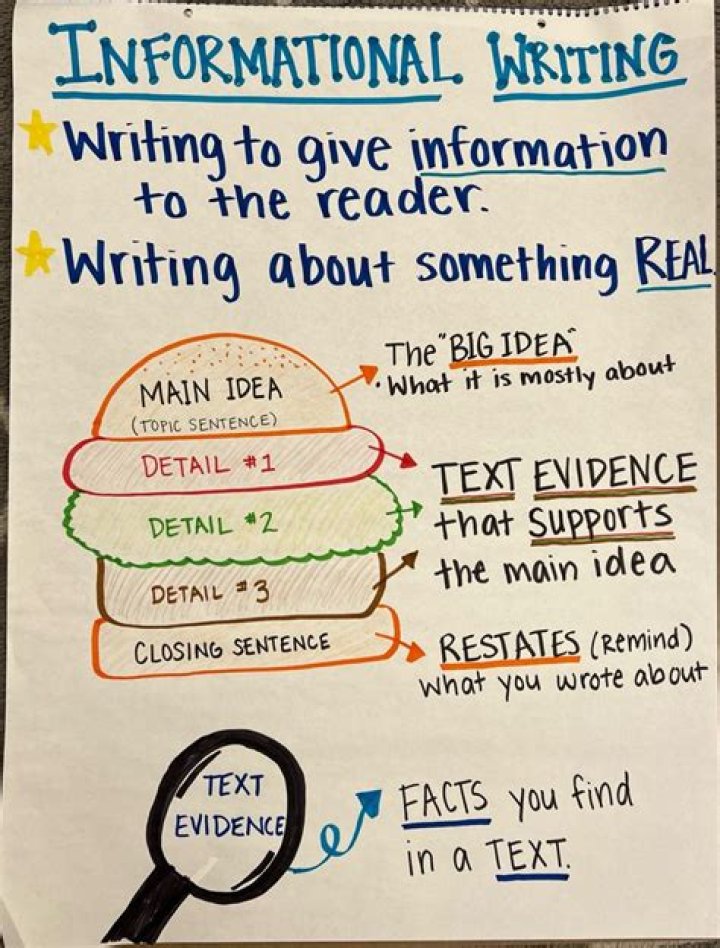 INFORMATIONAL WRITING
Writing to give information
to the reader.
Writing about something REAL.
MAIN IDEA
(TOPIC SENTENCE)
The "BIG IDEA"
• What it is mostly about
DETAIL #1
DETAIL #2
DETAIL #3
TEXT EVIDENCE
that SUPPORTS
the main idea
CLOSING SENTENCE
RESTATES (Remind)
what you wrote about
TEXT
EVIDENCE
FACTS you find
in a TEXT.